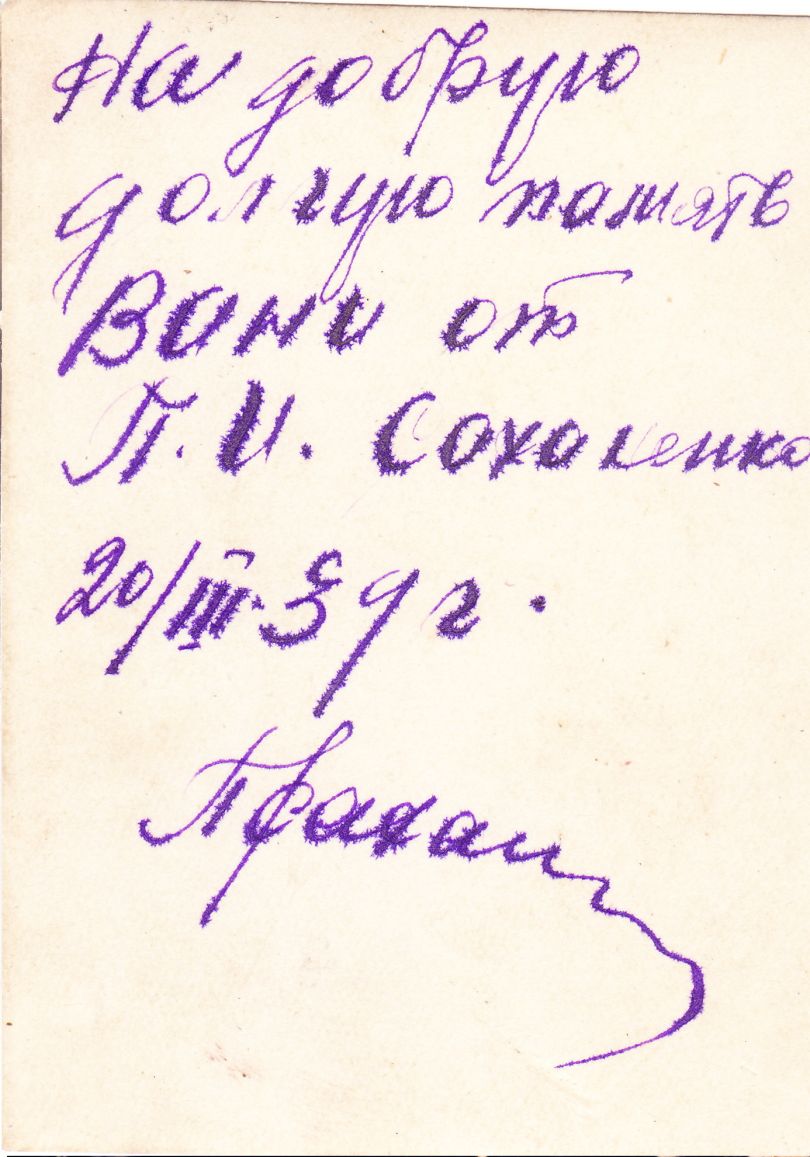 На добрую
долгую память
Вани от
П. И. Сохоленко
20/III 39 г.